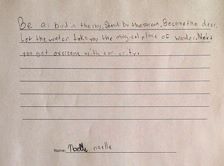 Be a bird in the sky, Stand by the stream, Become the deer.
Let the water take you the magical place of wonder. Make
you get overcome with
Name: Noelle noelle